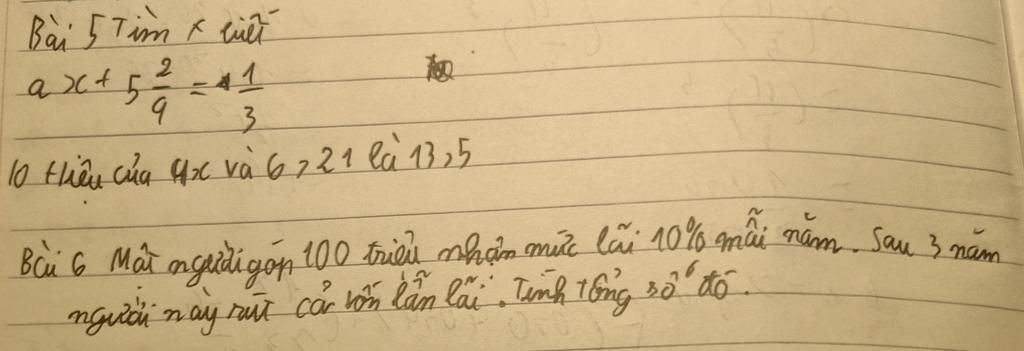 Bài 5 Tìm x biết
a x + 5 2/9 = 1/3
b Hiệu của 4x và 6,21 là 13,5
Bài 6 Một người góp 100 triệu nhận mức lãi 10% mỗi năm. Sau 3 năm
người này rút cả vốn lẫn lãi. Tính tổng số đó.